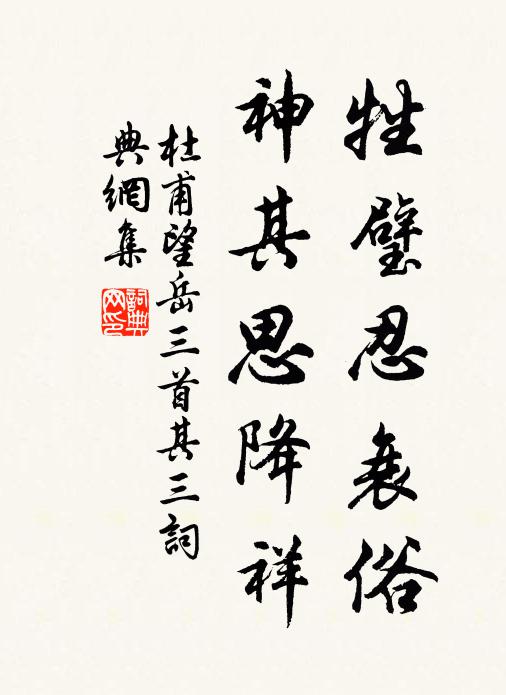 牲璧忍衰俗
神其思降祥
杜甫望岳三首其三詞
典網集
詞典
网印